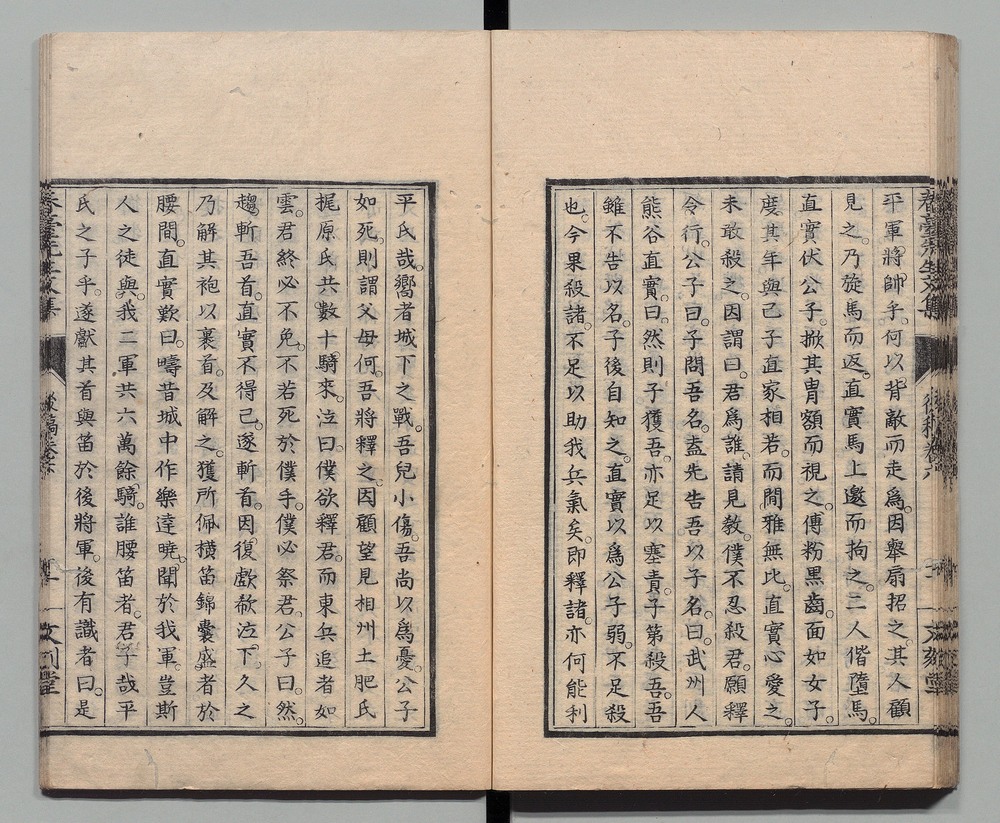 平軍將帥乎何以背敵而走爲因舉扇招之其人顧
見之乃旋馬而返直實馬上邀而拘之二人偕墮馬
直實伏公子掀其冑額而視之傅粉黑齒面如女子
度其年與己子直家相若而閒雅無比直實心愛之
未敢殺之因謂曰君爲誰請見敎僕不忍殺君願釋
令行公子曰子問吾名盍先告吾以子名曰武州人
熊谷直實曰然則子獲吾亦足以塞責子第殺吾吾
雖不告以名子後自知之直實以爲公子弱不足殺
也今果殺諸不足以助我兵氣矣卽釋諸亦何能利
平氏哉嚮者城下之戰吾兒小傷吾尚以爲憂公子
如死則謂父母何吾將釋之因顧望見相州土肥氏
梶原氏共數十騎來泣曰僕欲釋君而東兵追者如
雲君終必不免不若死於僕手僕必祭君公子曰然
趨斬吾首直實不得已遂斬首因復歔欷泣下久之
乃解其袍以裹首及解之獲所佩橫笛錦囊盛者於
腰間直實歎曰疇昔城中作樂達曉聞於我軍豈斯
人之徒與我二軍共六萬餘騎誰腰笛者君子哉平
氏之子乎遂獻其首與笛於後將軍後有識者曰是